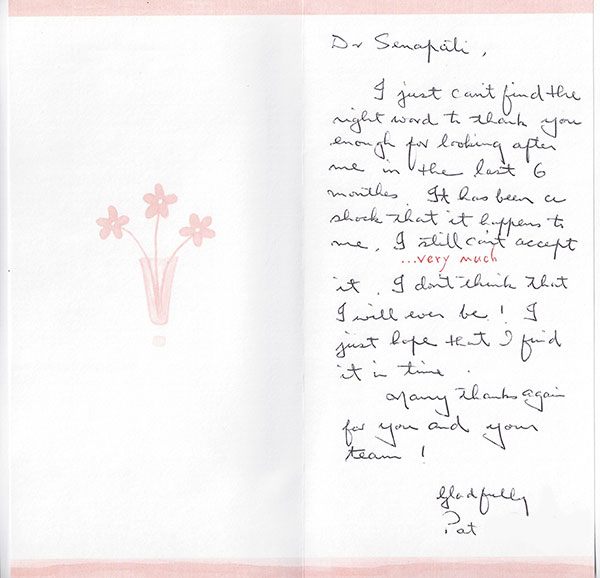 Dr Senapati,
I just can't find the
right word to thank you
enough for looking after
me in the last 6
monthes. It has been a
shock that it happens to
me, I still can't accept
...very much
it. I don't think that
I will ever be! I
just hope that I find
it in time.
Many thanks again
for you and your
team!
Gladfully
Pat